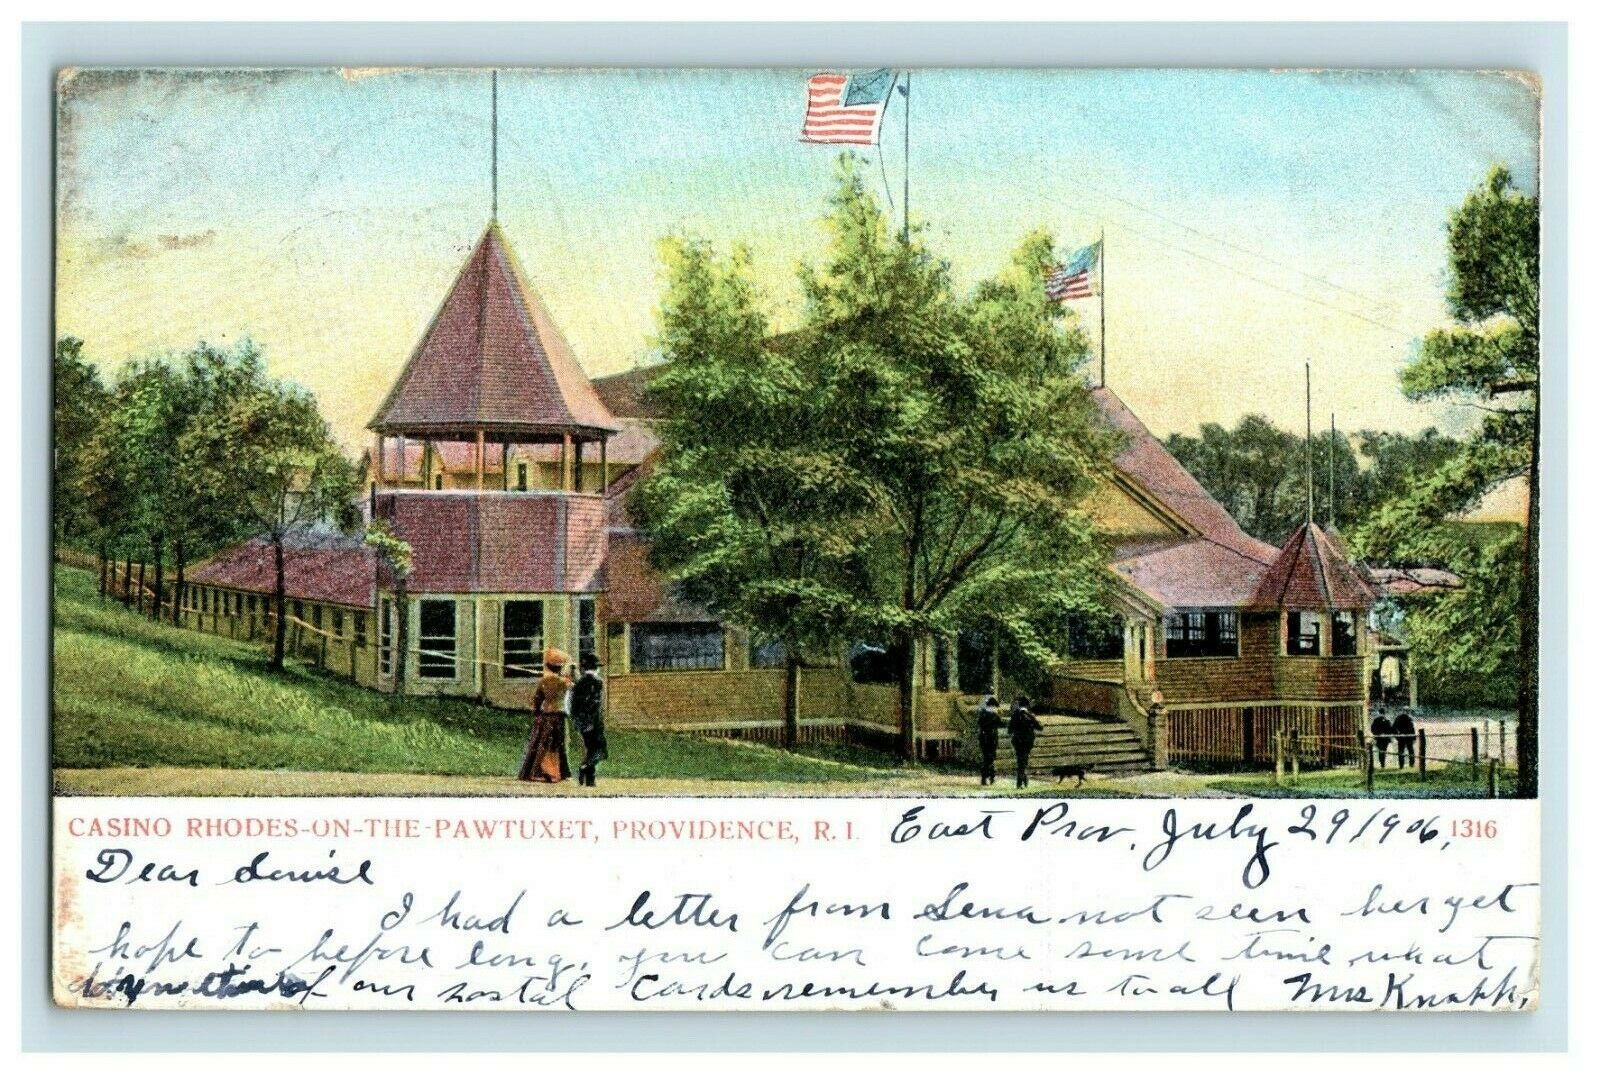 CASINO RHODES-ON-THE-PAWTUXET, PROVIDENCE, R. I. East Prov, July 29 1906, 1316
Dear Louise
I had a letter from Lena not seen her yet
hope to before long, you can come some time what
do you think of our postal Cards, remember us to all Mrs Knapp,